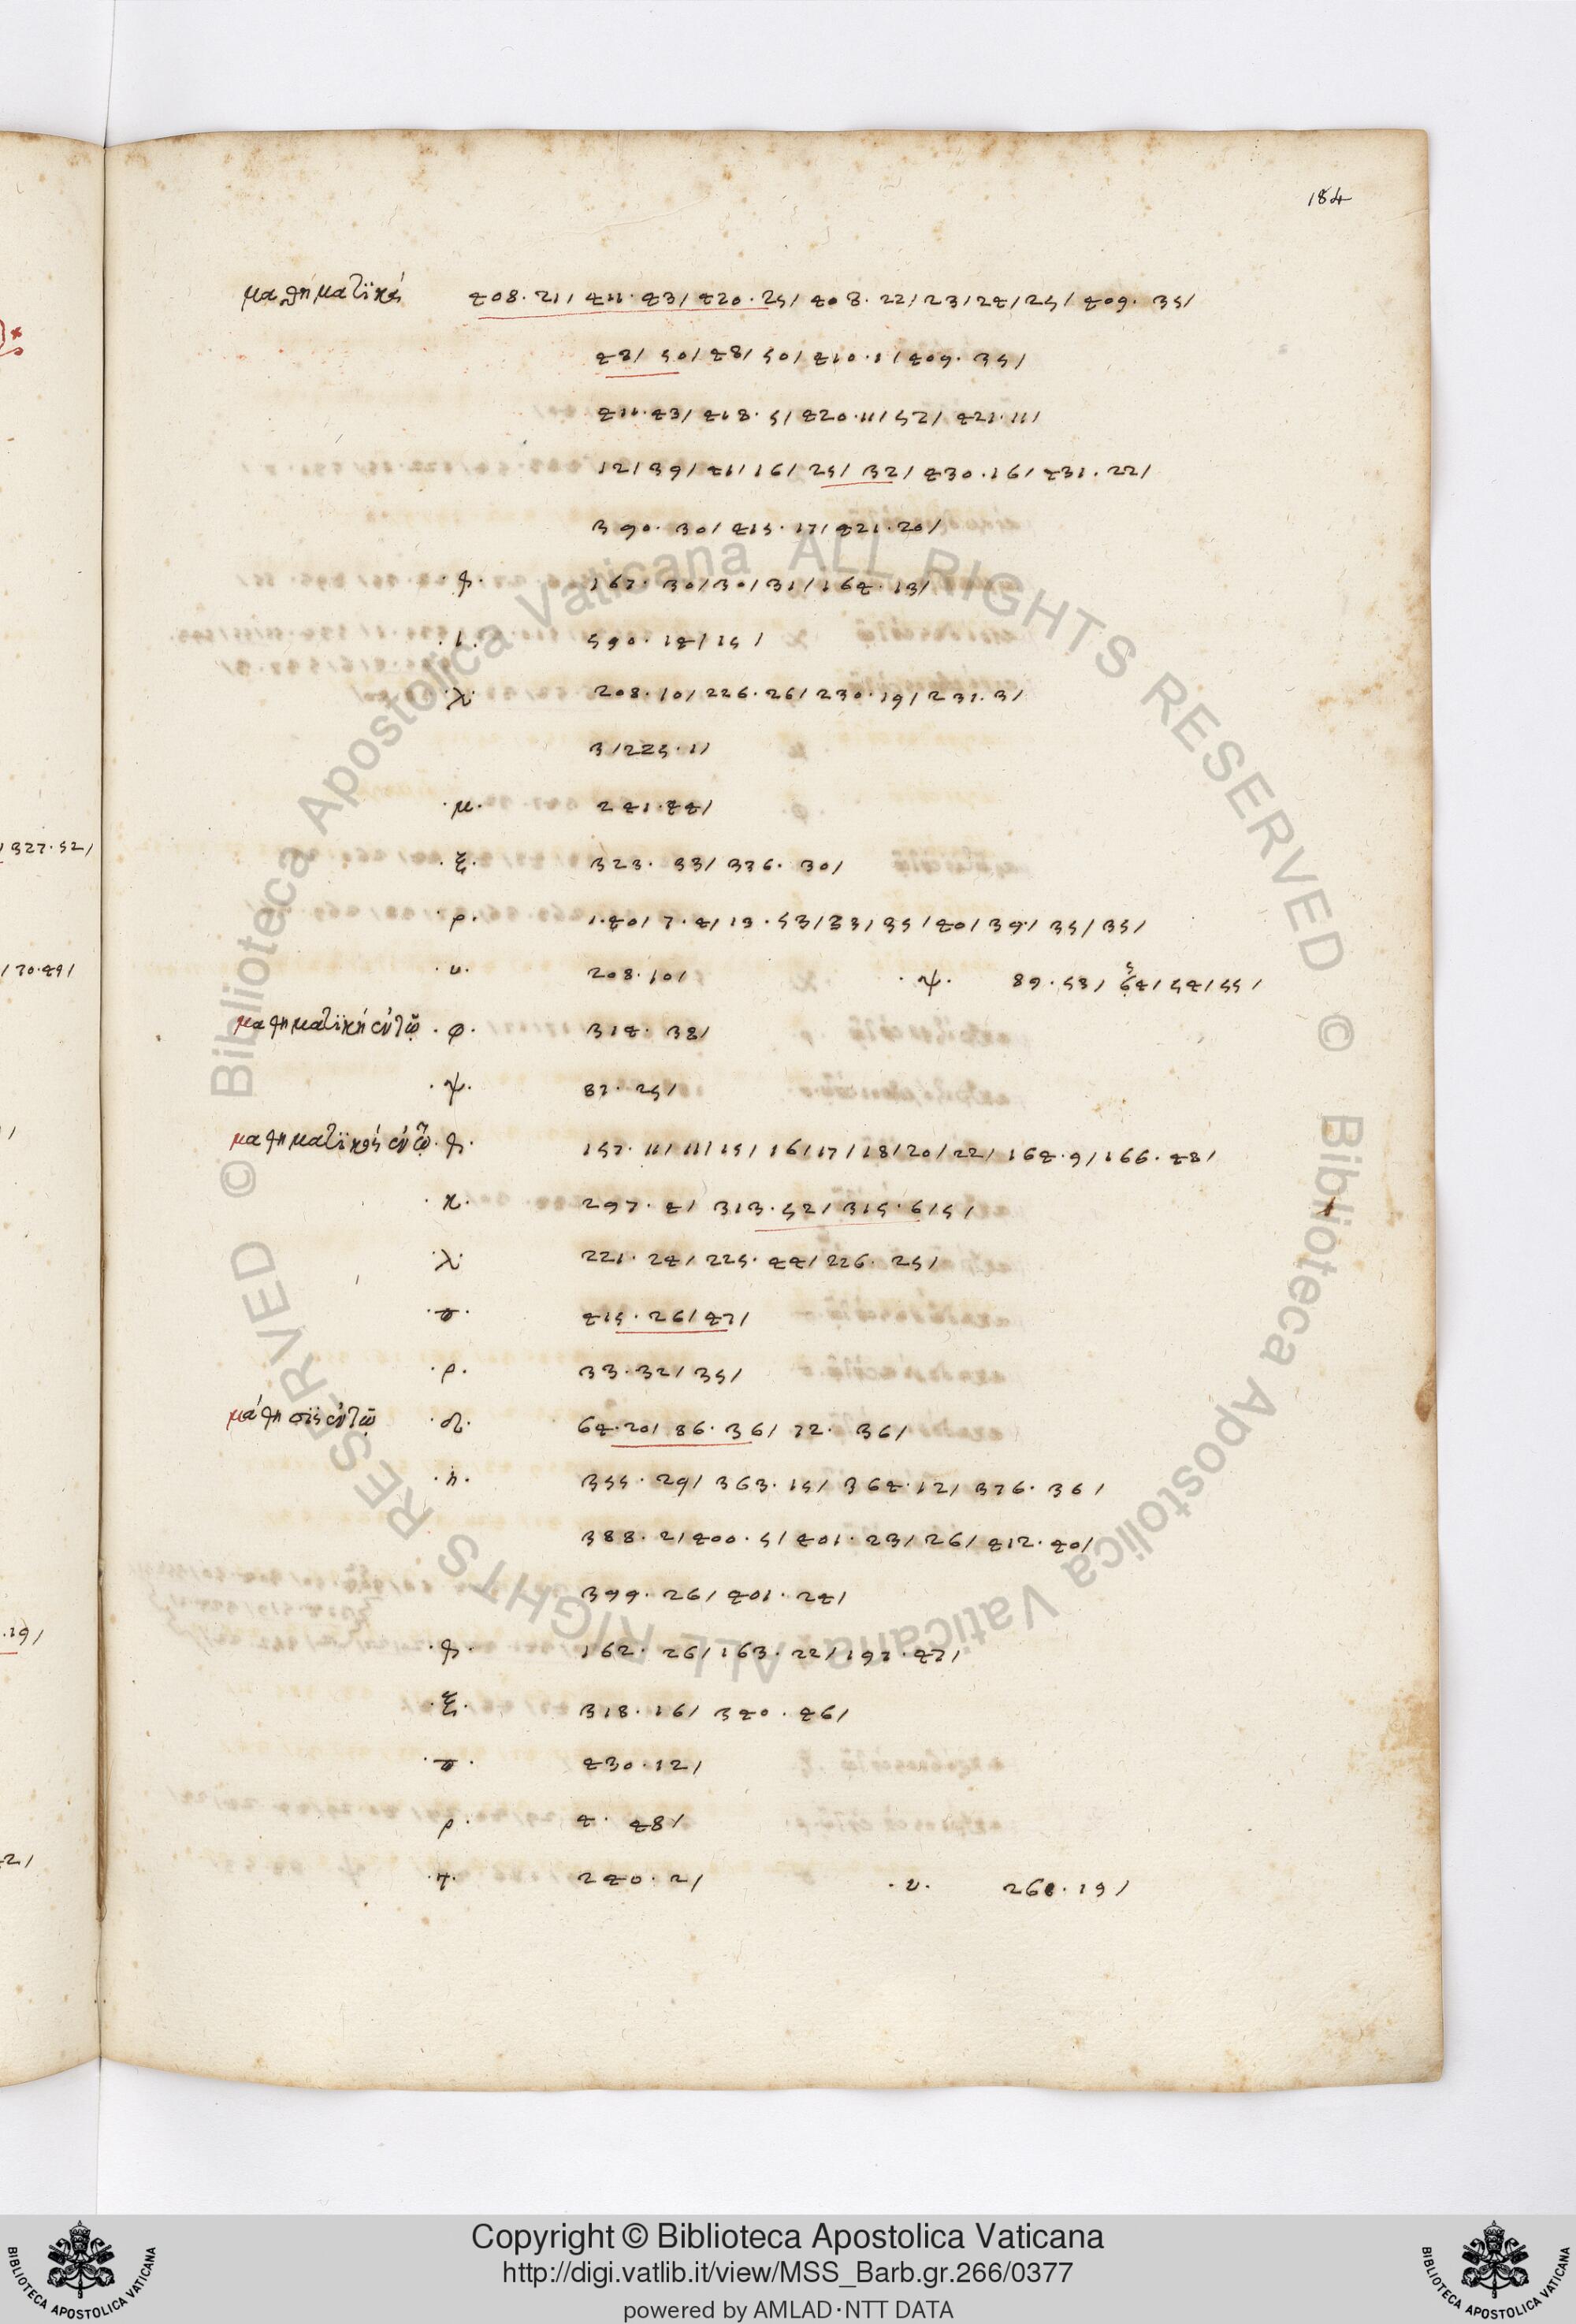 184
μαθηματϊκά 408.21/ 411.43/ 420.25/ 408.22/23/24/25/ 409.35/
48/ 50/ 48/ 50/ 410.1/ 409.35/
411.43/ 418.5/ 420.11/52/ 421.11/
12/39/41/16/25/32/ 430.16/ 431.22/
390.30/ 415.17/ 421.20/
.θ. 167.30/30/31/164.13/
.ι. 590.14/15/
.λ. 208.10/226.26/230.19/231.3/
3/225.1/
.μ. 241.44/
.ξ. 323.33/ 336.30/
.ρ. 1.40/7.4/13.53/33/35/40/39/35/35/
.υ. 208.10/ .ψ. 89.53/ 54/54/55/
/327.52/
/70.49/
μαθηματϊκή ἐν τῶ .φ. 314.38/
.ψ. 87.25/
μαθηματϊκός ἐν τῶ .θ. 157.11/11/15/16/17/18/20/22/164.9/166.48/
.κ. 297.4/ 313.52/ 315.6/5/
.λ. 221.24/225.44/226.25/
.π. 415.26/47/
.ρ. 33.32/35/
μάθησϊς ἐν τῶ .δ. 64.20/ 86.36/ 72.36/
.η. 355.29/ 363.15/ 364.12/ 376.36/
388.2/400.5/401.23/26/412.40/
399.26/ 401.24/
.19/
.θ. 162.26/163.22/197.47/
.ξ. 318.16/ 340.46/
.π. 430.12/
ρ. 4.48/
.τ. 240.2/ .υ. 260.19/
Copyright © Biblioteca Apostolica Vaticana
http://digi.vatlib.it/view/MSS_Barb.gr.266/0377
powered by AMLAD·NTT DATA
BIBLIOTECA APOSTOLICA VATICANA
BIBLIOTECA APOSTOLICA VATICANA
© Biblioteca Apostolica Vaticana ALL RIGHTS RESERVED © Biblioteca Apostolica Vaticana ALL RIGHTS RESERVED